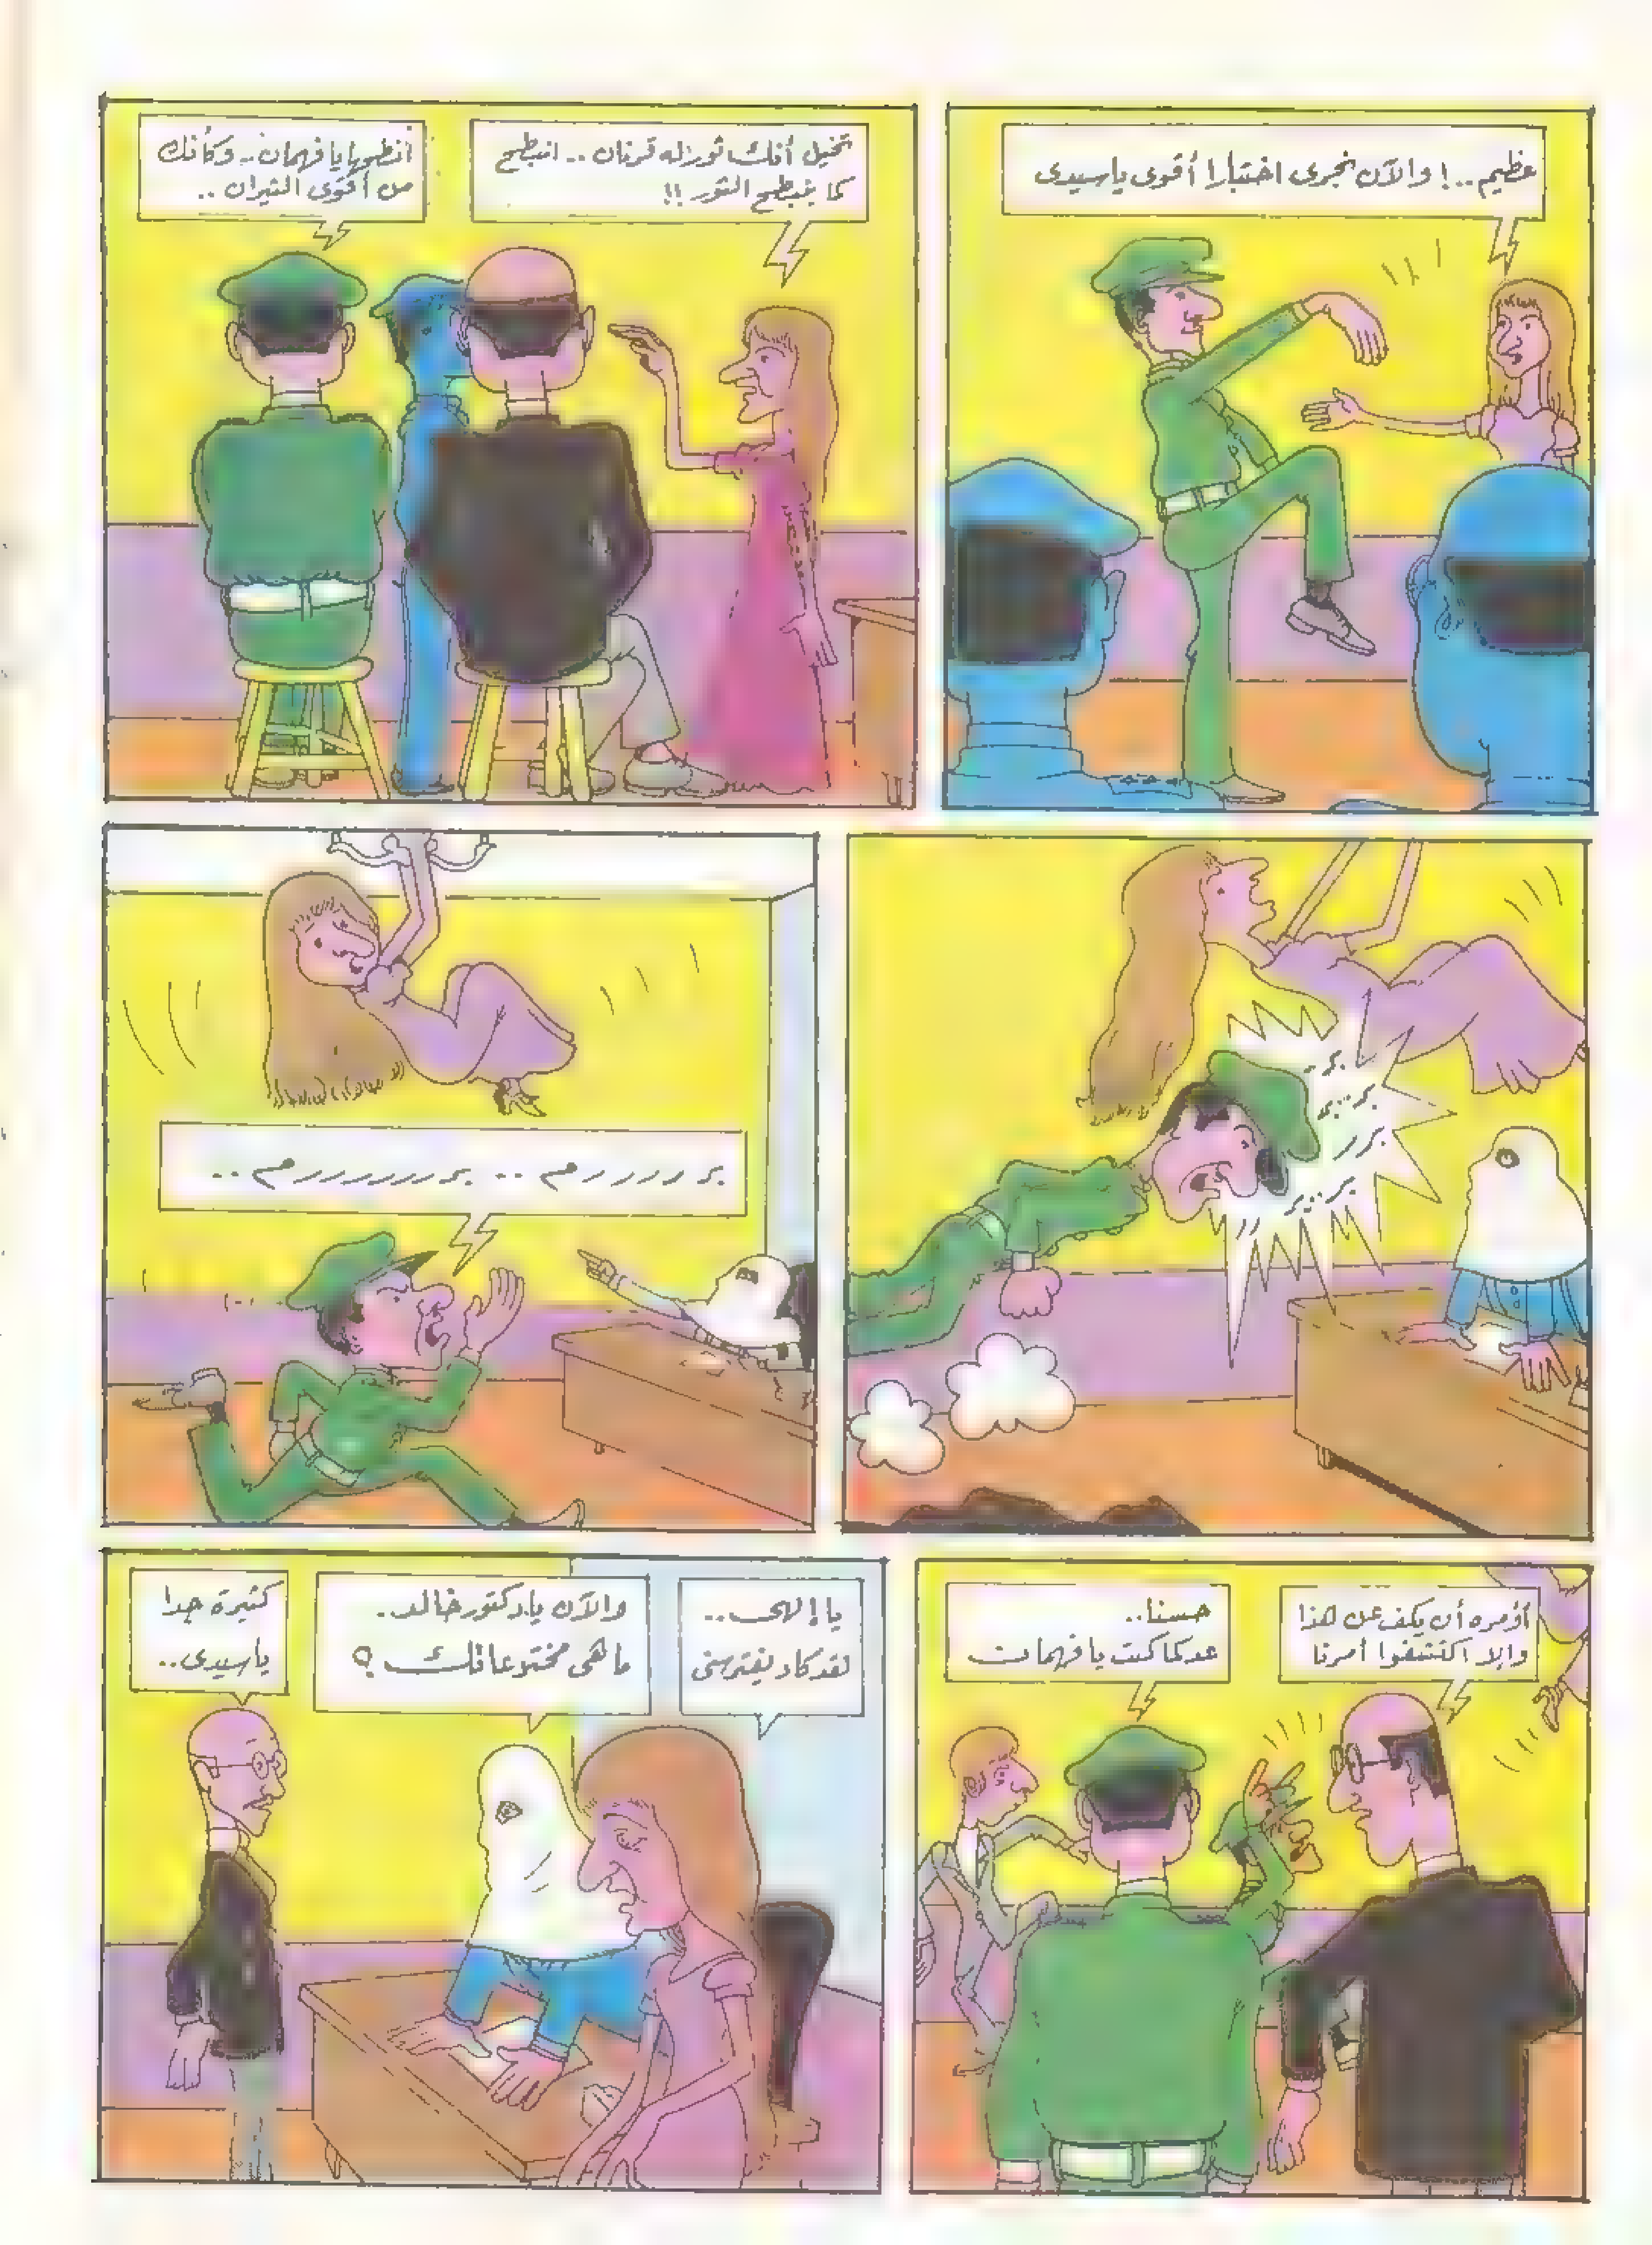 عظيم..! والآن نجرى اختبارا أقوى ياسيدى
تخيل أنك ثور له قرنان .. انبطح
كما ينبطح الثور !!
انطحها يا فهمان.. وكأنك
من أقوى الثيران ..
بر..
بر..بر
بررر
بر..بر
بر ررررم .. بررررررررم ..
أؤمره أن يكف عن هذا
وإلا اكتشفوا أمرنا
حسنا..
عد كما كنت يا فهمان
يا إلهى..
لقد كاد يفترسنى
والآن يا دكتور خالد.
ما هى مخترعاتك ؟
كثيرة جدا
ياسيدى..